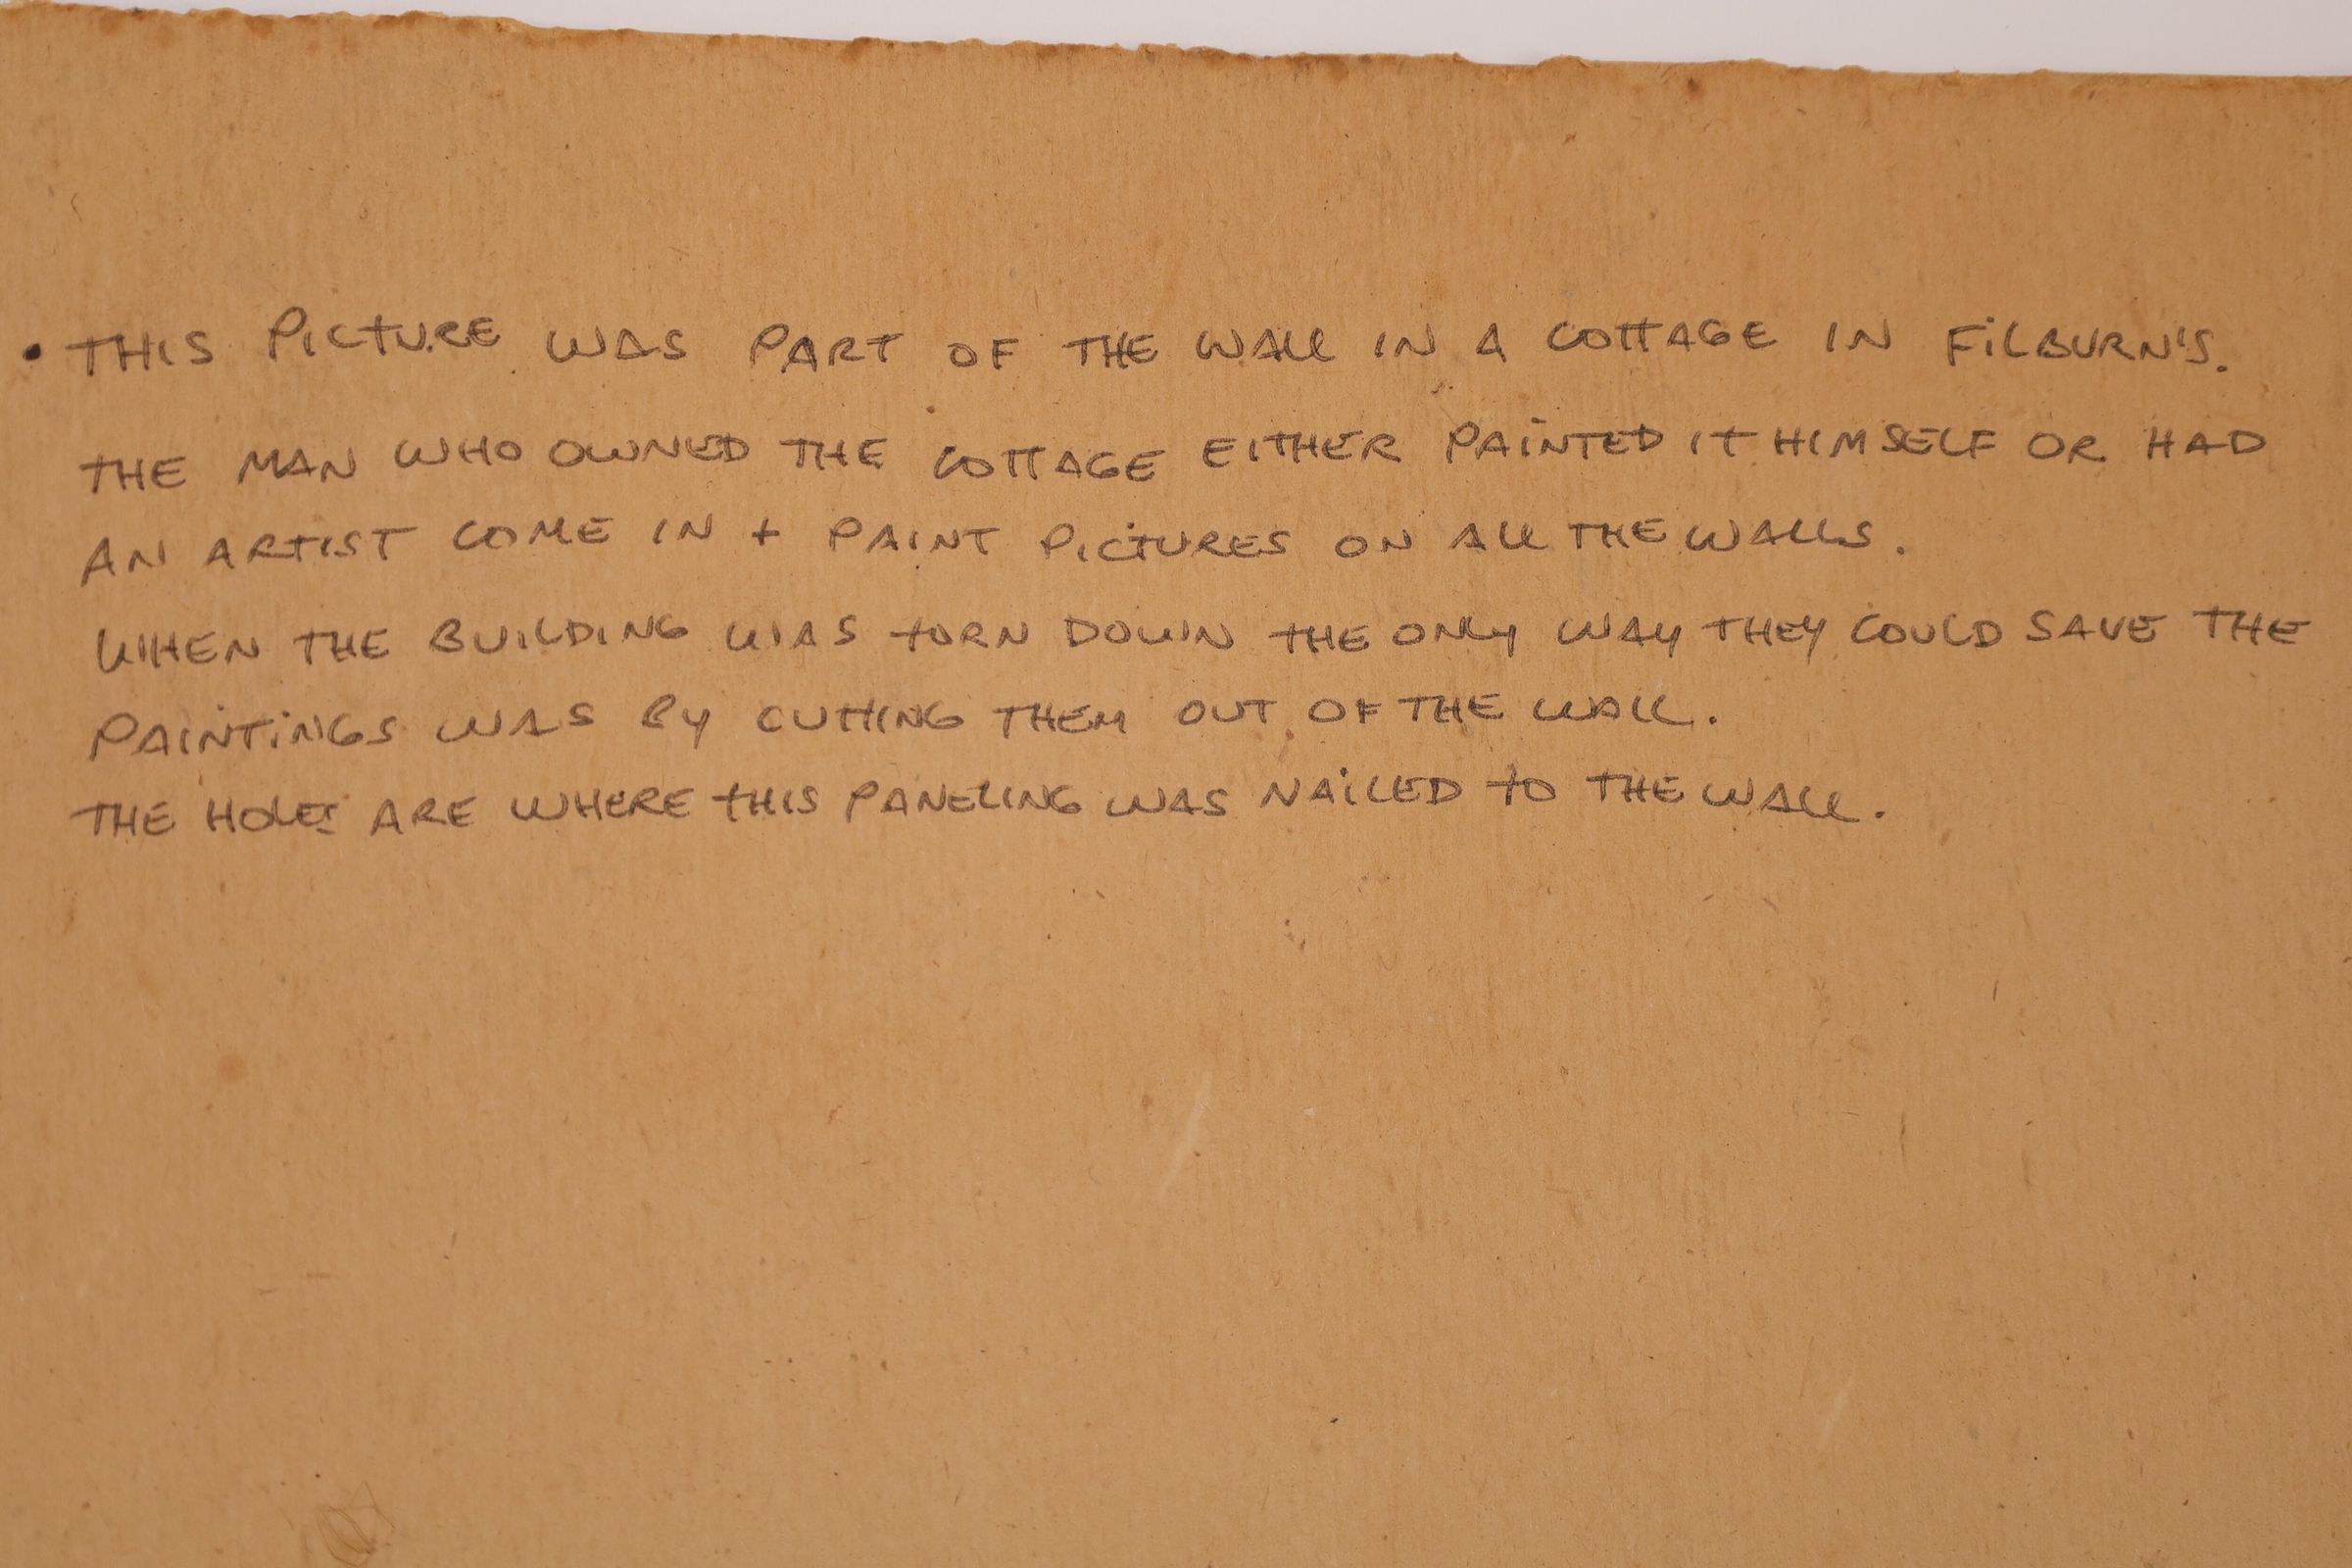 • THIS PICTURE WAS PART OF THE WALL IN A COTTAGE IN FILBURN'S.
THE MAN WHO OWNED THE COTTAGE EITHER PAINTED IT HIMSELF OR HAD
AN ARTIST COME IN + PAINT PICTURES ON ALL THE WALLS.
WHEN THE BUILDING WAS TORN DOWN THE ONLY WAY THEY COULD SAVE THE
PAINTINGS WAS BY CUTTING THEM OUT OF THE WALL.
THE HOLES ARE WHERE THIS PANELING WAS NAILED TO THE WALL.